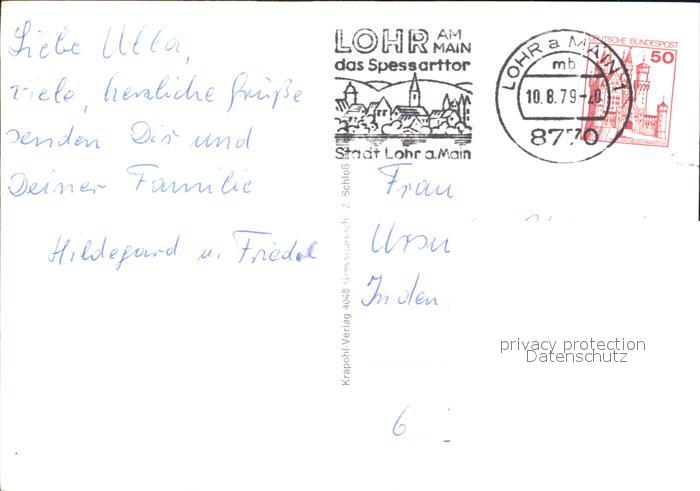 Liebe Ulla,
viele, herzliche Grüße
senden Dir und
Deiner Familie
Hildegard u. Friedel
LOHR AM MAIN
das Spessarttor
Stadt Lohr a.Main
LOHR a MAIN 1
mb
10.8.79-20
8770
DEUTSCHE BUNDESPOST
50
Krapohl-Verlag 4048 Grevenbroich 2, Schloß
Frau
In den
6
privacy protection
Datenschutz